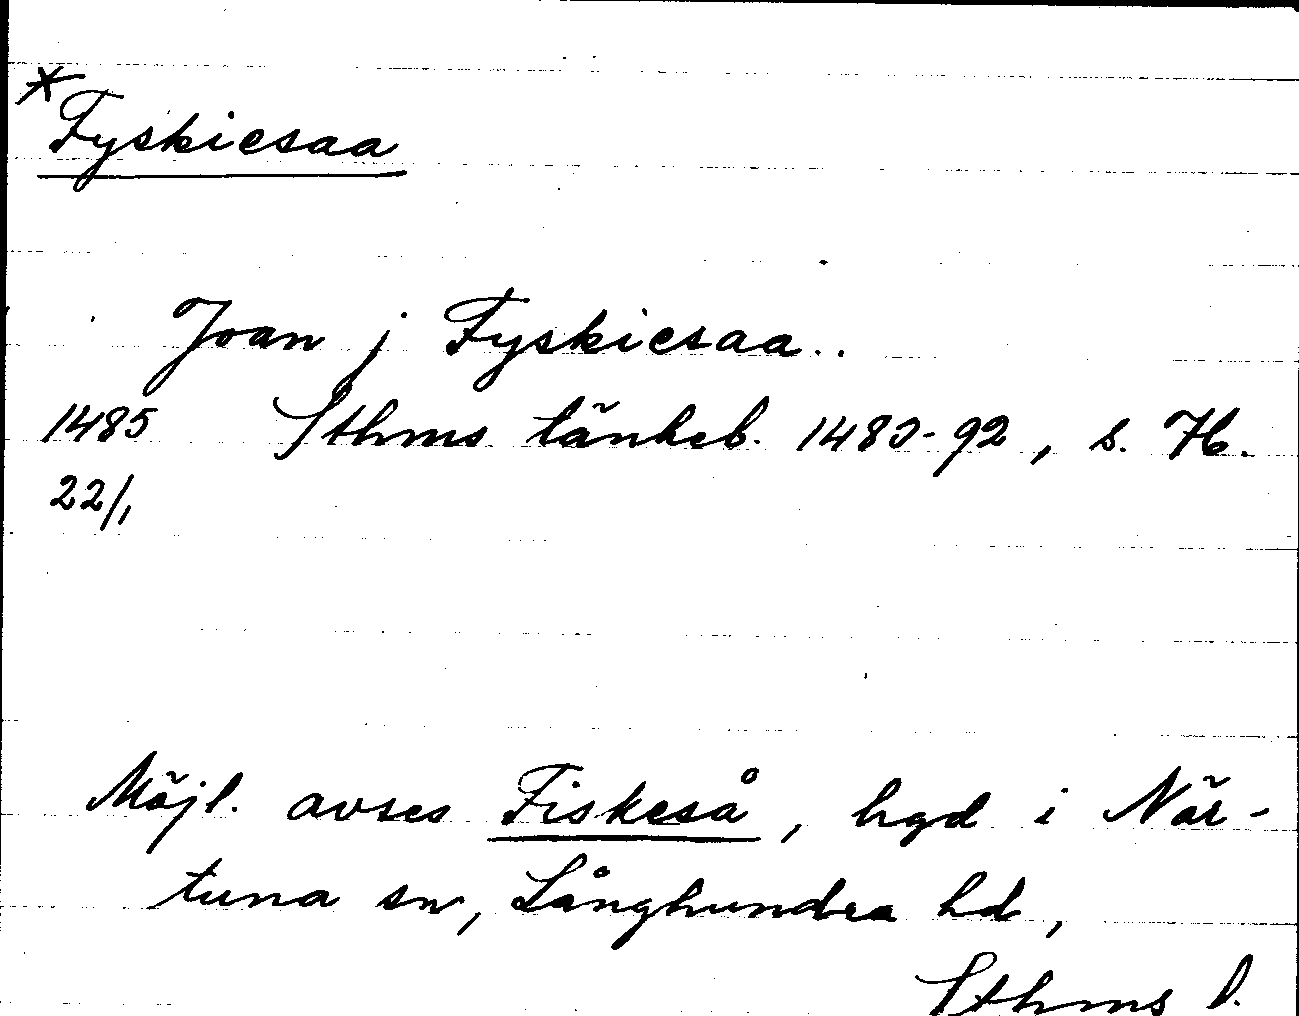 *Fyskiesaa
Joan j Fyskiesaa..
1485 Sthms tänkeb. 1483-92, s. 76.
22/1
Möjl. avses Fiskeså, hgd i När-
tuna sn, Långhundra hd,
Sthms l.